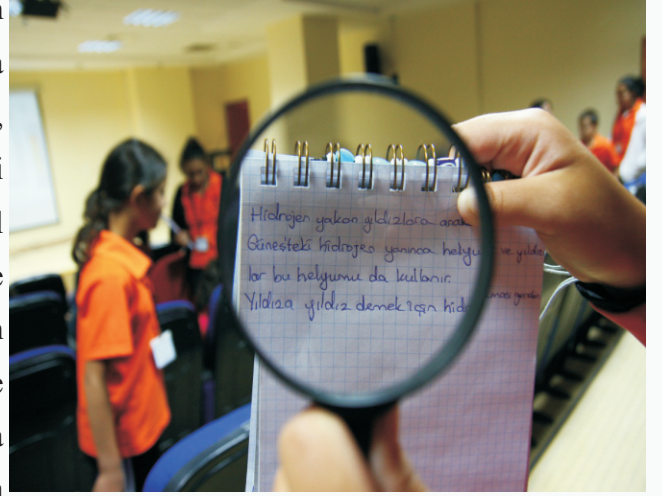 Hidrojen yakan yıldızlara
Güneş'teki hidrojen yanınca helyu ve yıldız
lar bu helyumu da kullanır.
Yıldıza yıldız demek için hid